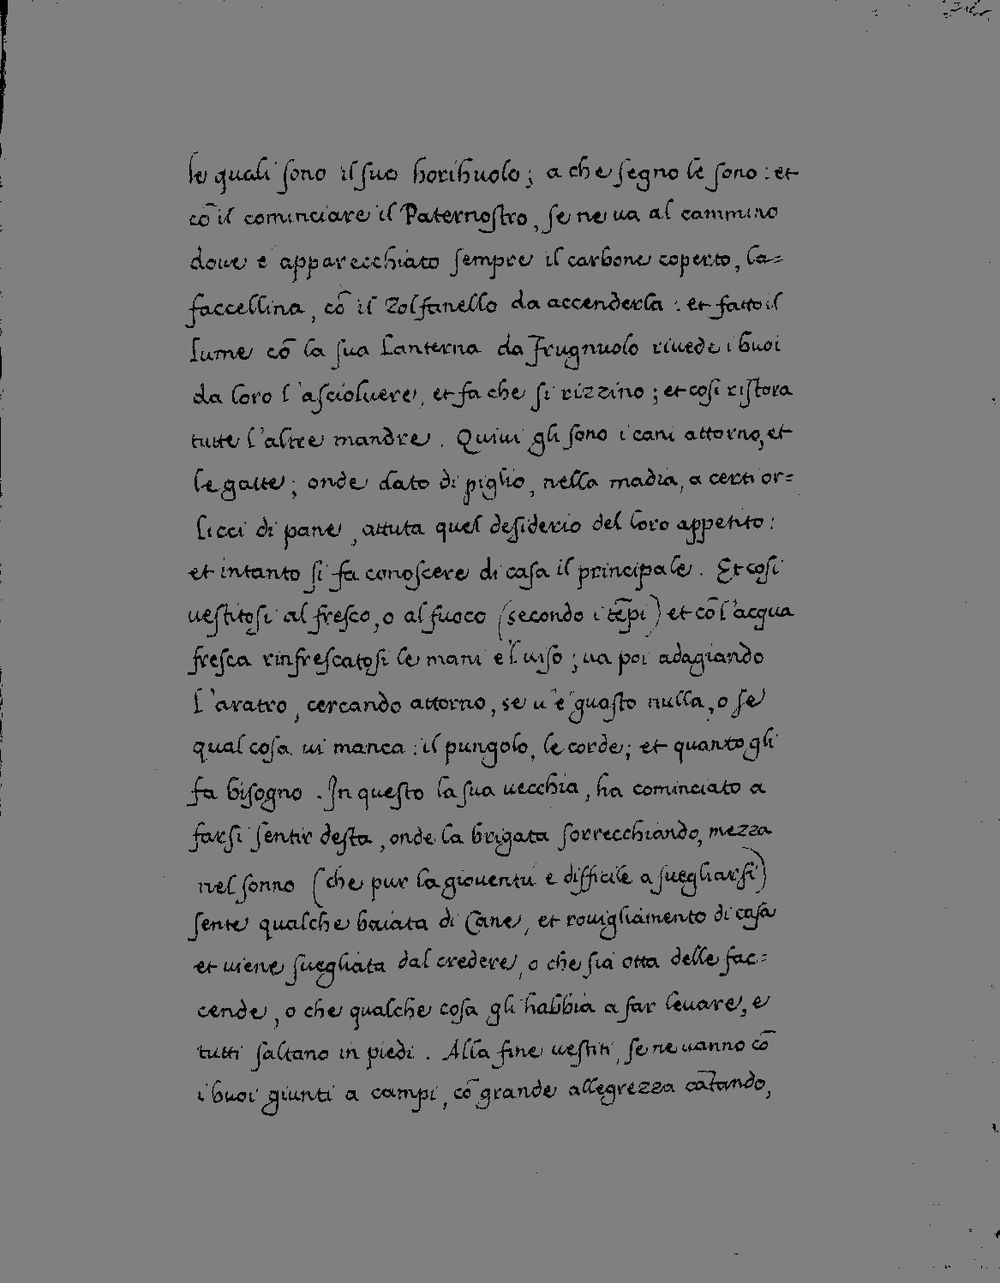 le quali sono il suo horihuolo; a che segno le sono: et
cō il cominciare il Paternostro, se ne ua al cammino
doue è apparecchiato sempre il carbone coperto, la=
faccellina, cō il Zolfanello da accenderla: et fatto il
lume cō la sua Lanterna da Frugnuolo riuede i buoi
da loro l'asciolvere, et fa che si rizzino; et cosi ristora
tutte l'altre mandre. Quiui gli sono i cani attorno, et
le gatte; onde dato di piglio, nella madia, a certi or=
licci di pane, attuta quel desiderio del loro appetito:
et intanto si fa conoscere di casa il principale. Et cosi
uestitosi al fresco, o al fuoco (secondo i tēpi) et cō l'acqua
fresca rinfrescatosi le mani e'l uiso; ua poi adagiando
l'aratro, cercando attorno, se u'è guasto nulla, o se
qual cosa ui manca: il pungolo, le corde; et quanto gli
fa bisogno. In questo la sua uecchia, ha cominciato a
farsi sentir desta, onde la brigata sorrecchiando, mezza
nel sonno (che pur la giouentu è difficile a suegliarsi)
sente qualche baiata di Cane, et rouigliamento di casa
et uiene suegliata dal credere, o che sia otta delle fac=
cende, o che qualche cosa gli habbia a far leuare, e
tutti saltano in piedi. Alla fine uestiti, se ne uanno cō
i buoi giunti a campi, cō grande allegrezza cātando,